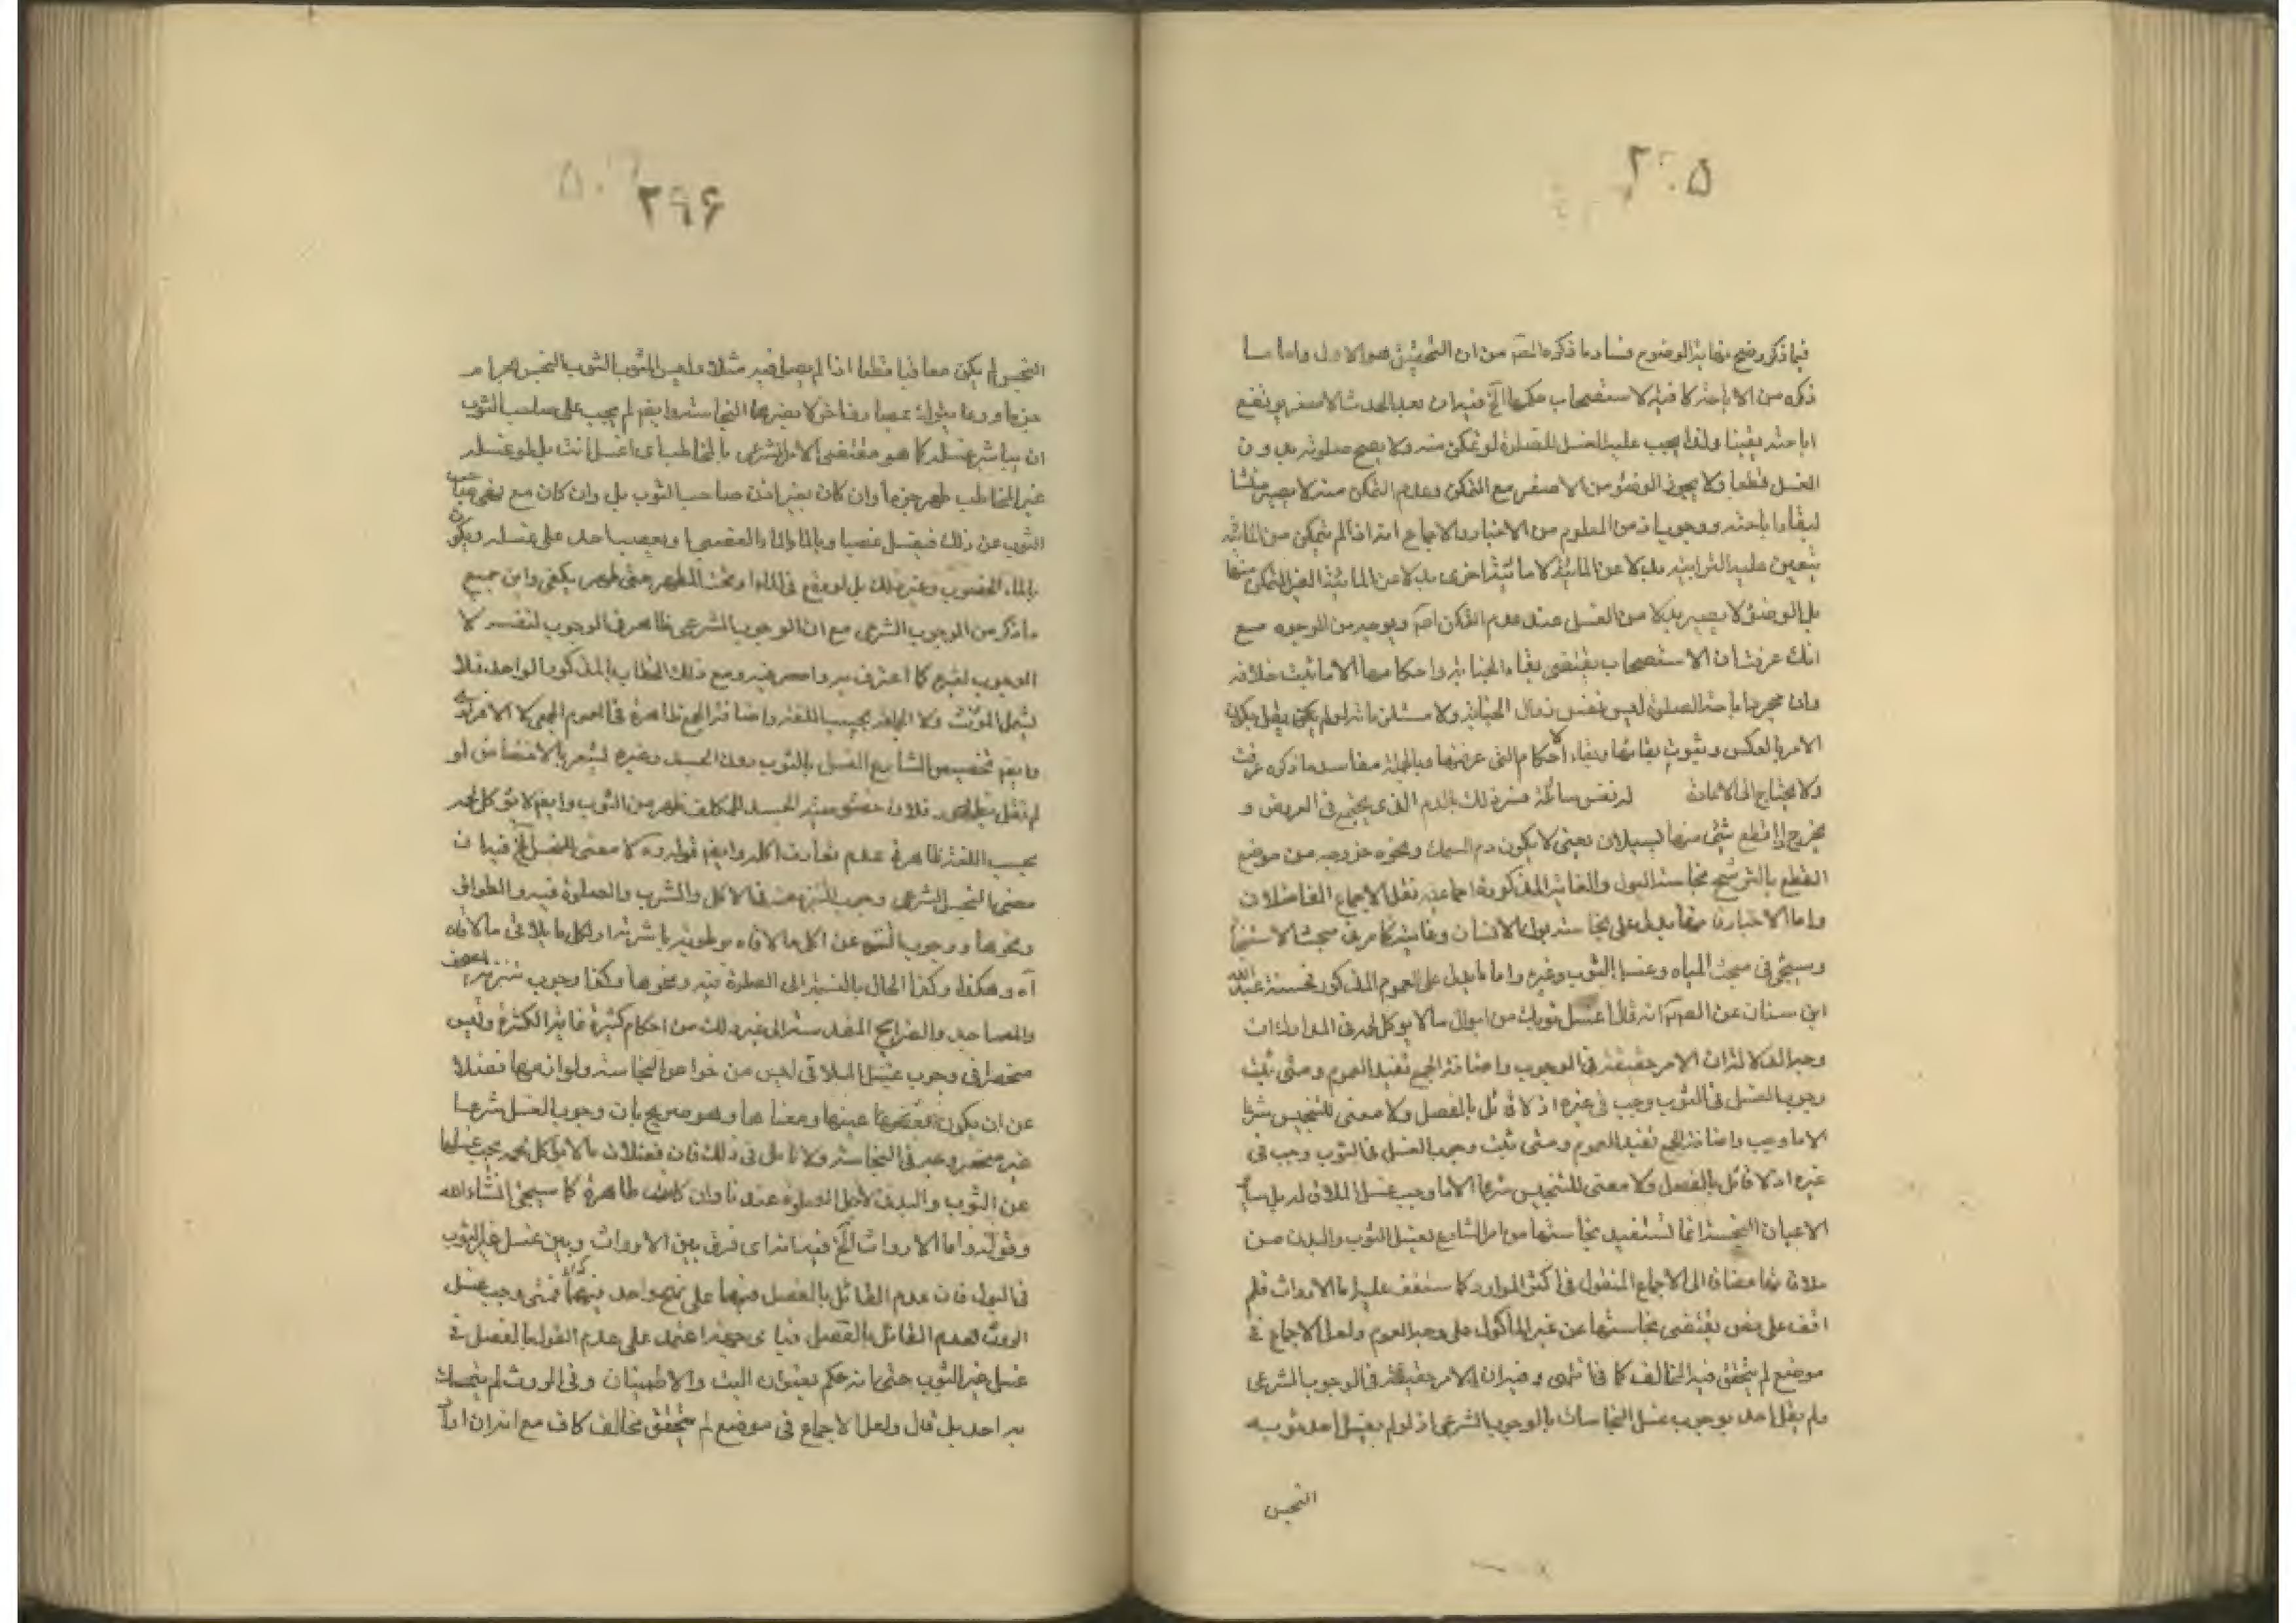 ٢٩٥
فيما ذكر وضح نهاية الوضوح فساد ما ذكره المص من ان التحقيق هو الاول واما ما
ذكره من الاباحة لا فيه لاستصحاب حكمها الخ فيه ان بعد الحدث الاصغر يرتفع
اباحته يقينا ولذا يجب عليه الغسل للصلوة لو تمكن منه ولا يصح صلوته بدون
الغسل قطعا ولا يجوز الوضوء من الاصغر مع التمكن وعدم التمكن منه لا يصير منشا
لبقاء اباحته ووجوبه اذ من المعلوم من الاخبار والاجماع انه اذا لم يتمكن من المائية
يتعين عليه الترابية بدلا عن المائية لا مائية اخرى بدلا عن المائية الغير المتمكن منها
بل الوضوء لا يصير بدلا من الغسل عند عدم التمكن اصلا وبوجه من الوجوه مع
انك عرفت ان الاستصحاب يقتضى بقاء الجنابة واحكامها الا ما ثبت خلافه
وان مجرد اباحة الصلوة ليس نفس زوال الجنابة ولا مستلزمة له لو لم يكن يقل بكون
الامر بالعكس وثبوت بقائها وبقاء احكام التى عرفتها وبالجملة مفاسد ما ذكره عرفت
ولا يحتاج الى الاعادة له نفس سائلة فسر ذلك بالدم الذى يجتمع فى العروق و
يخرج اذا قطع شئ منها بسيلان يعنى لا يكون دم السمك ونحوه خروجه من موضع
القطع بالترشح نجاسة البول والغائط المذكورة اجماعية نقل الاجماع الفاضلان
واما الاخبار فمنها يدل على نجاسة بول الانسان وغائطه كما مر فى مبحث الاستنجاء
وسيجئ فى مبحث المياه وغسل الثوب وغيره واما ما يدل على العموم المذكور فحسنة عبد الله
ابن سنان عن الصادق انه قال اغسل ثوبك من ابوال ما لا يؤكل لحمه فى المدارك ان
وجه الدلالة ان الامر حقيقة فى الوجوب واضافة الجمع تفيد العموم ومتى ثبت
وجوب الغسل فى الثوب وجب فى غيره اذ لا قائل بالفصل ولا معنى للنجس شرعا
الا ما وجب واضافة الجمع تفيد العموم ومتى ثبت وجوب الغسل فى الثوب وجب فى
غيره اذ لا قائل بالفصل ولا معنى للنجس شرعا الا ما وجب غسل الملاقى له بل سائر
الاعيان النجسة انما تستفيد نجاستها من امر الشارع بغسل الثوب والبدن من
ملاقاتها مضافا الى الاجماع المنقول فى اكثر الموارد كما ستقف عليه اما الاروات فلم
اقف على نص يقتضى نجاستها من غير المأكول على وجه العموم ولعل الاجماع فى
موضع لم يتحقق فيه المخالف كاف انتهى وفيه ان الامر حقيقة فى الوجوب الشرعى
ولم يقل احد بوجوب غسل النجاسات بالوجوب الشرعى اذ لو لم يغسل احد ثوبه
النجس
٢٩٦
النجس لم يكن معاقبا قطعا اذا لم يصل فيه مثلا وليس الثوب النجس حراما
جزما وربما يتوك عصيا رفاض لا يضرها النجاسة وايضا لم يجب على صاحب الثوب
ان يباشر غسله كما هو مقتضى الامر الشرعى بالمخاطب اى اغسل انت بل لو غسله
غير المخاطب طهر جزما وان كان بغير اذن صاحب الثوب بل وان كان مع نهى صاحب
الثوب عن ذلك فيغسل غصبا وبالماء المغصوب ويغصب احد على غسله ويكون
بالماء المغصوب وغير ذلك بل لو وقع فى الماء او تحت المطر حتى طهر يكفى واين جميع
ما ذكر من الوجوب الشرعى مع ان الوجوب الشرعى ظاهر فى الوجوب لنفسه لا
الوجوب لغيره كما اعترف به واصر فيه ومع ذلك الخطاب بالمذكور الواحد فلا
يشمل المؤنث ولا الجماعة بحسب اللغة واضافة الجمع ظاهرة فى العموم الجمعى لا الافرادى
وايضا تخصيص الشارع الغسل بالثوب دون الجسد وغيره ليشعر بالاختصاص لو
لم نقل بظهوره فلان
بحسب اللغة ظاهرة عدم تعارف اكله وايضا قوله ولا معنى للنجس الخ فيه ان
معنى النجس الشرعى وجوب التنزه عنه فى الاكل والشرب والصلوة فيه والطواف
ونحوها ووجوب التنزه عن اكل ما لاقاه برطوبة او شربه او اكل ما يلاقى ما لاقاه
آه وهكذا وكذا الحال بالنسبة الى الصلوة فيه ونحوها وكذا وجوب تنزه المصحف
والمساجد والضرايح المقدسة الى غير ذلك من احكام كثيرة غاية الكثرة وليس
منحصرا فى وجوب غسل الملاقى ليس من خواص النجاسة ولوازمها فضلا
عن ان يكون عينها ومعناها وهو صريح بان وجوب الغسل شرعا
غير منحصر فى النجاسة ولا تامل فى ذلك فان فضلات ما لا يؤكل لحمه يجب غسلها
عن الثوب والبدن لاجل الصلوة عندنا وان كانت طاهرة كما سيجئ انشاء الله
وقوله واما الاروات الخ فيه انه اى فرق بين الاروات وبين غسل غير الثوب
فى البول فان عدم القائل بالفصل فيها على نهج واحد فيهما فمتى وجب غسل
الروث لعدم القائل بالفصل فباى جهة اعتمد على عدم القول بالفصل فى
غسل غير الثوب حتى انه حكم بعنوان البت والاطمينان وفى الروث لم يتمسك
به احد بل قال ولعل الاجماع فى موضع لم يتحقق مخالف كاف مع انه ان اراد